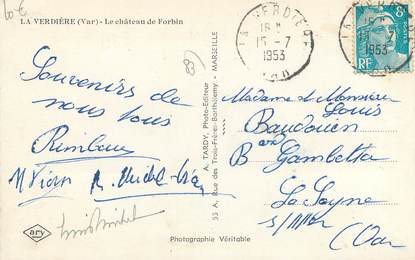 LA VERDIÈRE (Var) - Le château de Forbin
LA VERDIÈRE
15-7
1953
VAR
8F
RF
1953
Souvenirs de
nous tous
A. TARDY, Photo-Editeur
53 A, Rue des Trois-Frères-Barthélemy - MARSEILLE
Madame et Monsieur
Louis
Baudouin
Bard Gambetta
La Seyne
s/Mer
(Var
ary
Photographie Véritable